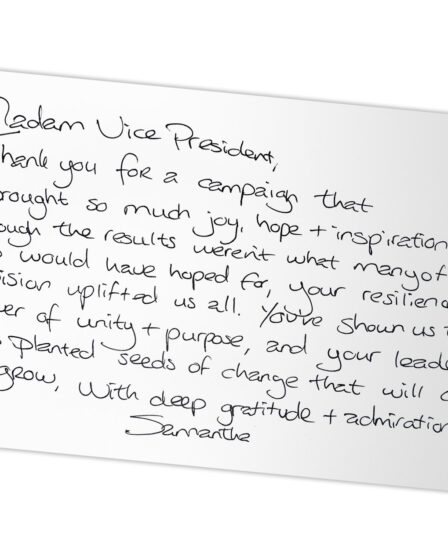 Madam Vice President,
Thank you for a campaign that
brought so much joy, hope + inspiration
ough the results weren't what many of
would have hoped for, your resilienc
ision uplifted us all. You've shown us
er of unity + purpose, and your leade
planted seeds of change that will
grow, With deep gratitude + admiration
Samantha